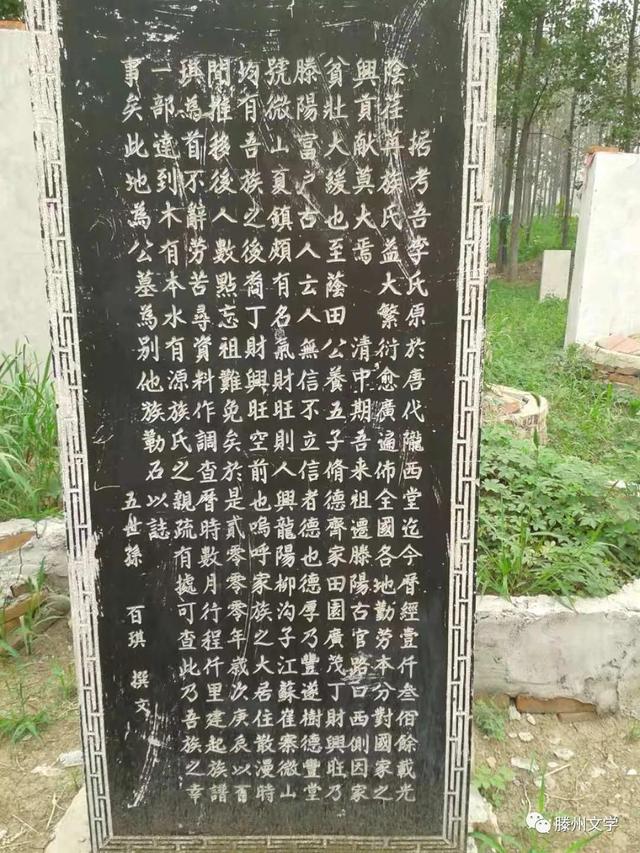 据考吾李氏原於唐代隴西堂迄今曆經壹仟叁佰餘載光
陰荏苒族氏益大繁衍愈廣遍佈全國各地勤劳本分對國家之
興貢献莫大焉 清中期吾来祖遷滕陽古官路口西側因家
貧壯大緩也至蔭田公養五子脩德齊家田園廣茂丁財興旺乃
滕陽富户古人云人無信不立信者德也德厚乃豐遂樹德豐堂
號微山夏鎮頗有名氣財旺則人興龍陽柳沟子江蘇崔寨微山
均有吾族之後裔丁財興旺空前也嗚呼家族之大居住散漫時
間推移後人數點忘祖難免矣於是貳零零零年歲次庚辰以百
琪為首不辭劳苦尋資料作調查曆時數月行程仟里建起族譜
一部達到木有本水有源族氏之親疏有據可查此乃吾族之幸
事矣此地為公墓為别他族勒石以誌
五世孫 百琪 撰文
滕州文学